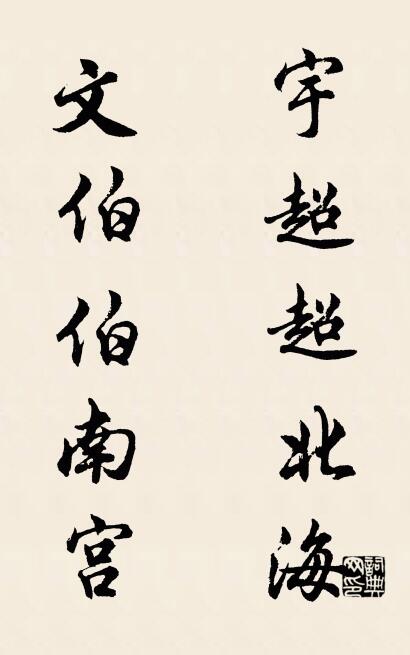 宇超超北海
文伯伯南宫
詞典网印